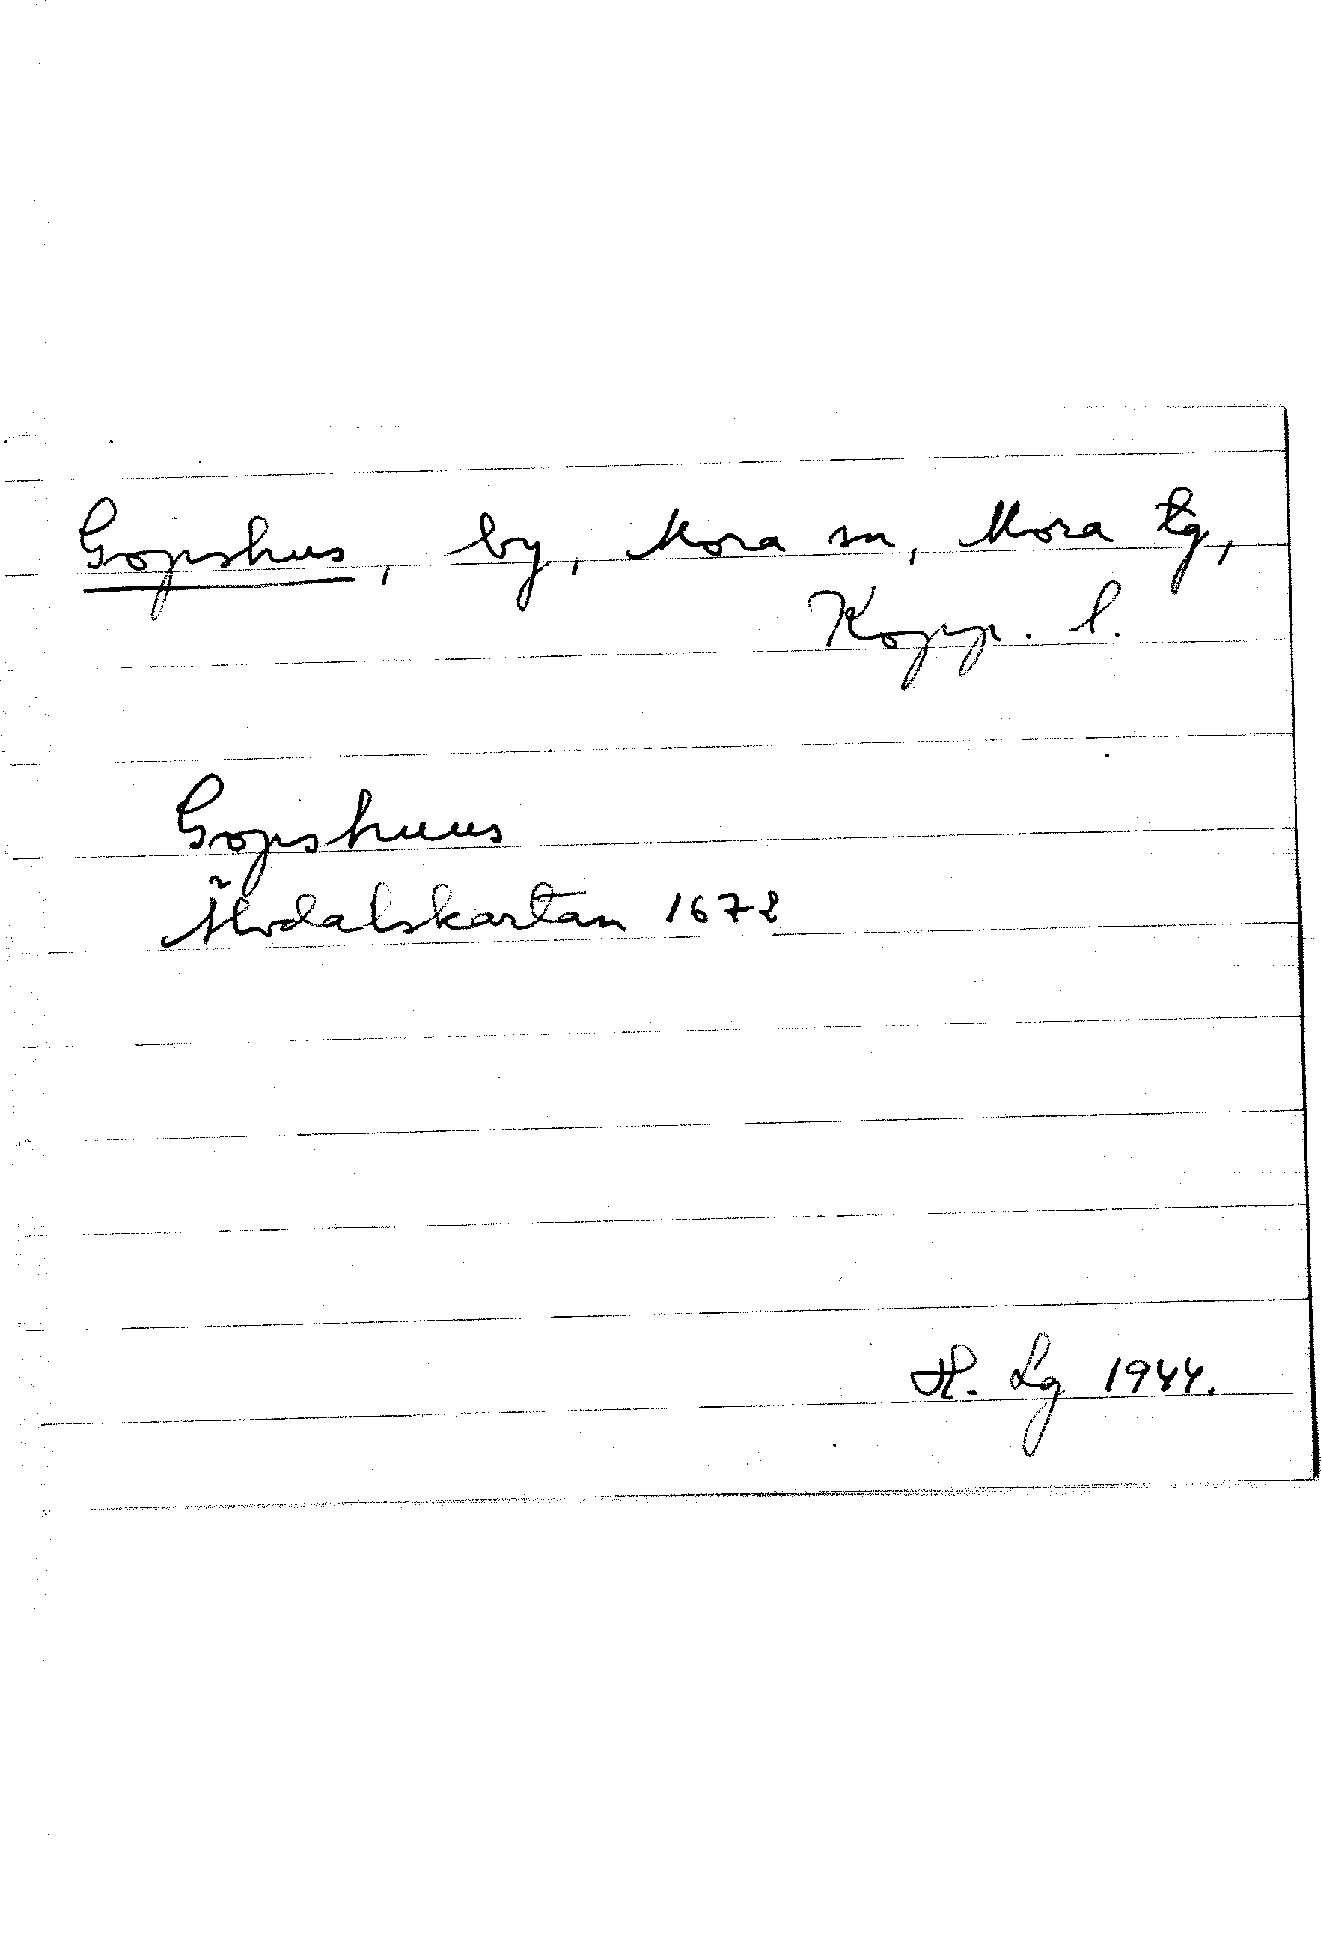 Gopshus, by, Mora sn, Mora tg,
Kopp. l.
Gopshuus
Älvdalskartan 1672
H. Lg 1944.